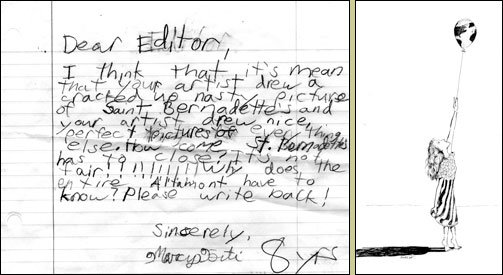 Dear Editor,
I think that it's mean
that your artist drew a
cracked up nasty picture
of Saint Bernadette's and
your artist drew nice
perfect pictures of every thing
else. How come St. Bernadette's
has to close? It's not
fair!!!!!!!!! Why does the
entire Altamont have to
know? Please write back!
Sincerely,
8 yrs